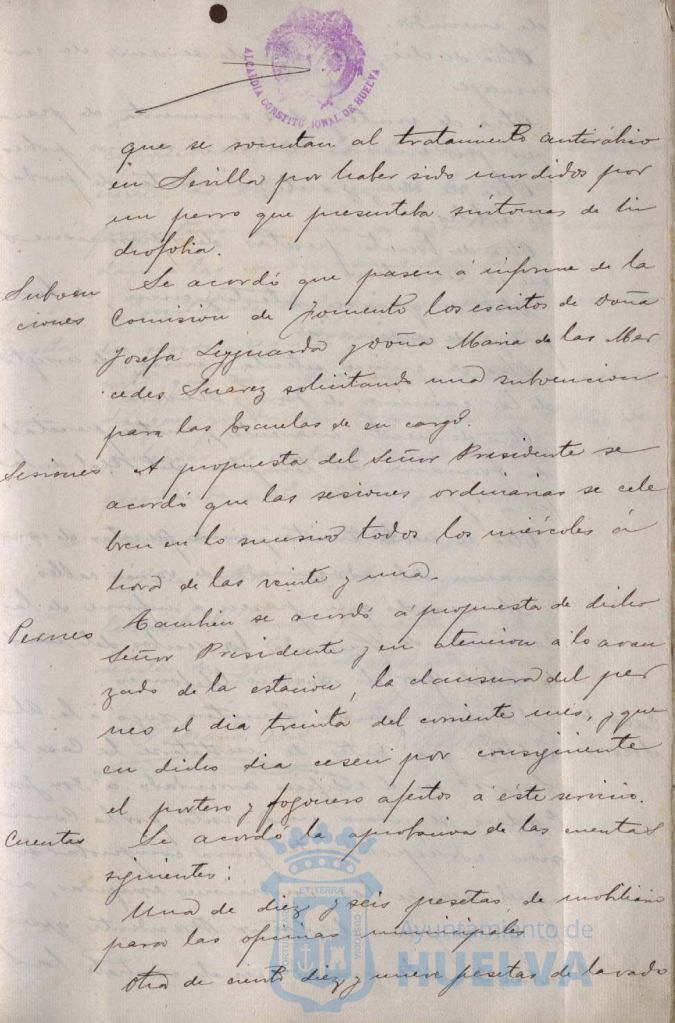 ALCALDIA CONSTITUCIONAL DE HUELVA
que se sometan al tratamiento antirábico
en Sevilla por haber sido mordidos por
un perro que presentaba síntomas de hi
drofobia.
Subven
ciones
Se acordó que pasen á informe de la
Comision de Fomento los escritos de Doña
Josefa y Doña Maria de las Mer
cedes Suarez solicitando una subvencion
para las Escuelas de su cargo.
Sesiones.
A propuesta del Señor Presidente se
acordó que las sesiones ordinarias se cele
bren en lo sucesivo todos los miércoles á
hora de las veinte y una.
Perneo
Tambien se acordó á propuesta de dicho
Señor Presidente y en atencion á lo avan
zado de la estacion, la clausura del per
neo el dia treinta del corriente mes, y que
en dicho dia cesen por consiguiente
el portero y fogonero afectos á este servicio.
Cuentas
Se acordó la aprobacion de las cuentas
siguientes:
Una de diez y seis pesetas de mobiliario
para las oficinas municipales
Otra de ciento diez y nueve pesetas de lavado
Ayuntamiento de
HUELVA